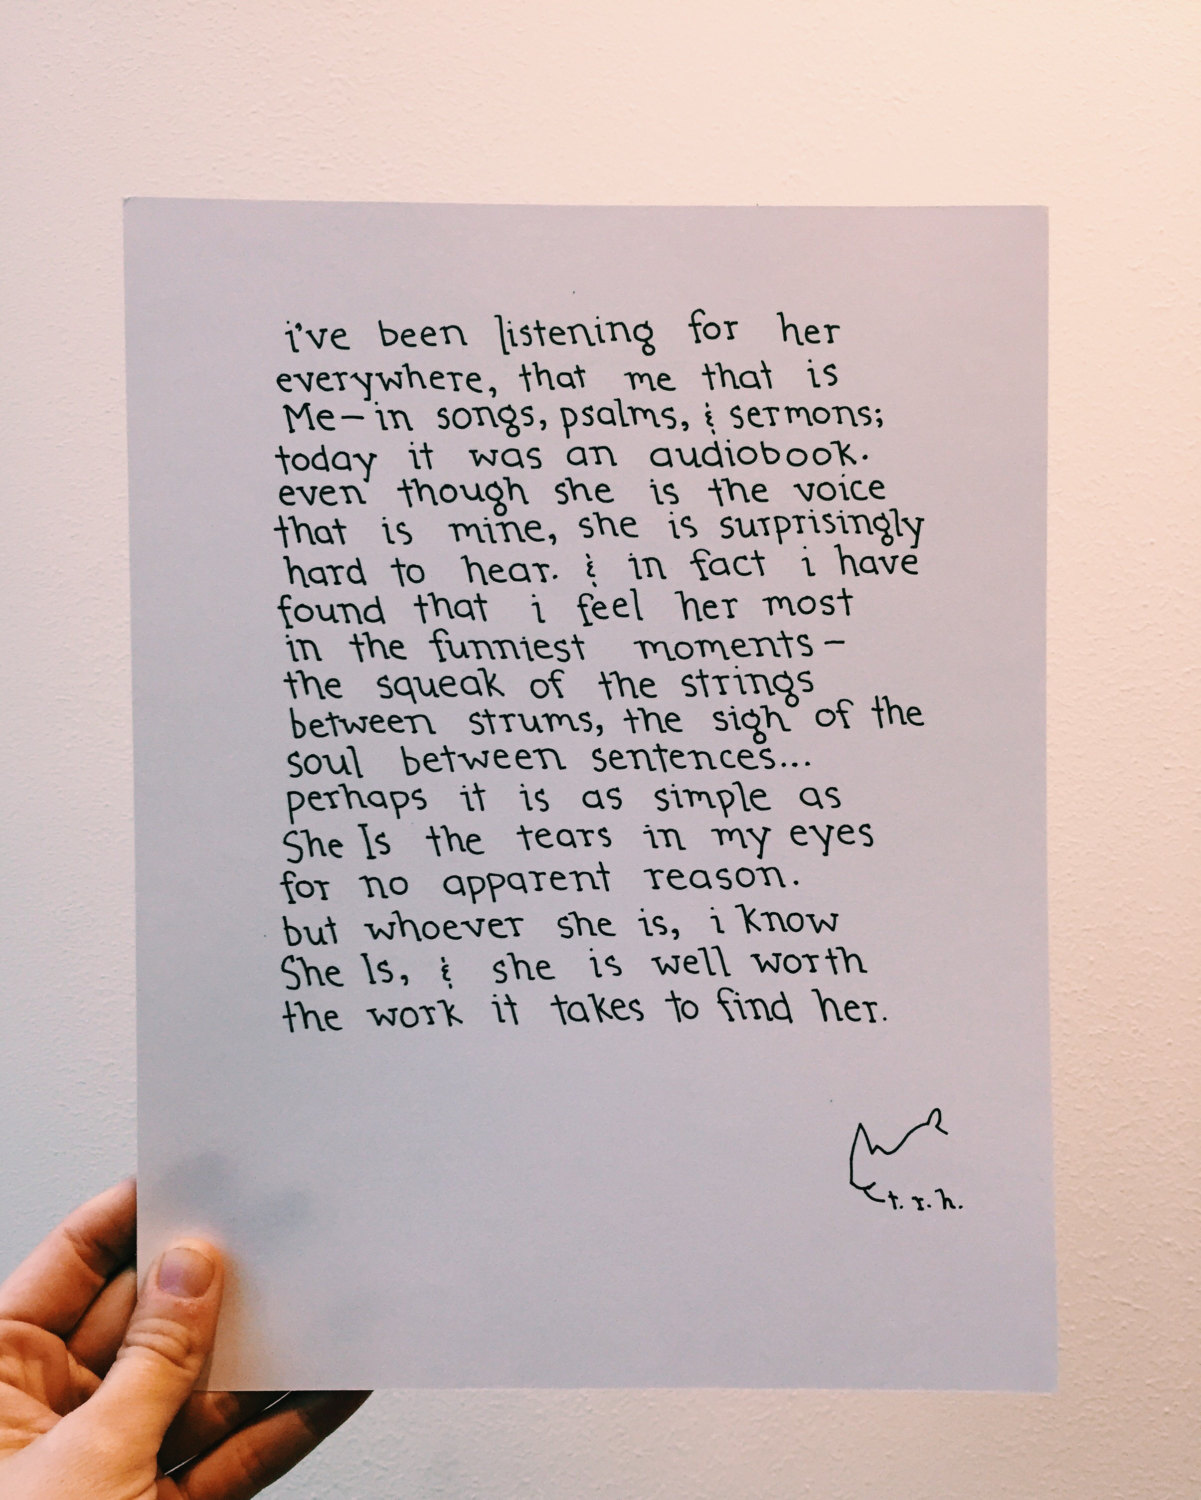 i've been listening for her
everywhere, that me that is
Me—in songs, psalms, & sermons;
today it was an audiobook.
even though she is the voice
that is mine, she is surprisingly
hard to hear. & in fact i have
found that i feel her most
in the funniest moments—
the squeak of the strings
between strums, the sigh of the
soul between sentences...
perhaps it is as simple as
She Is the tears in my eyes
for no apparent reason.
but whoever she is, i know
She Is, & she is well worth
the work it takes to find her.
t.r.h.